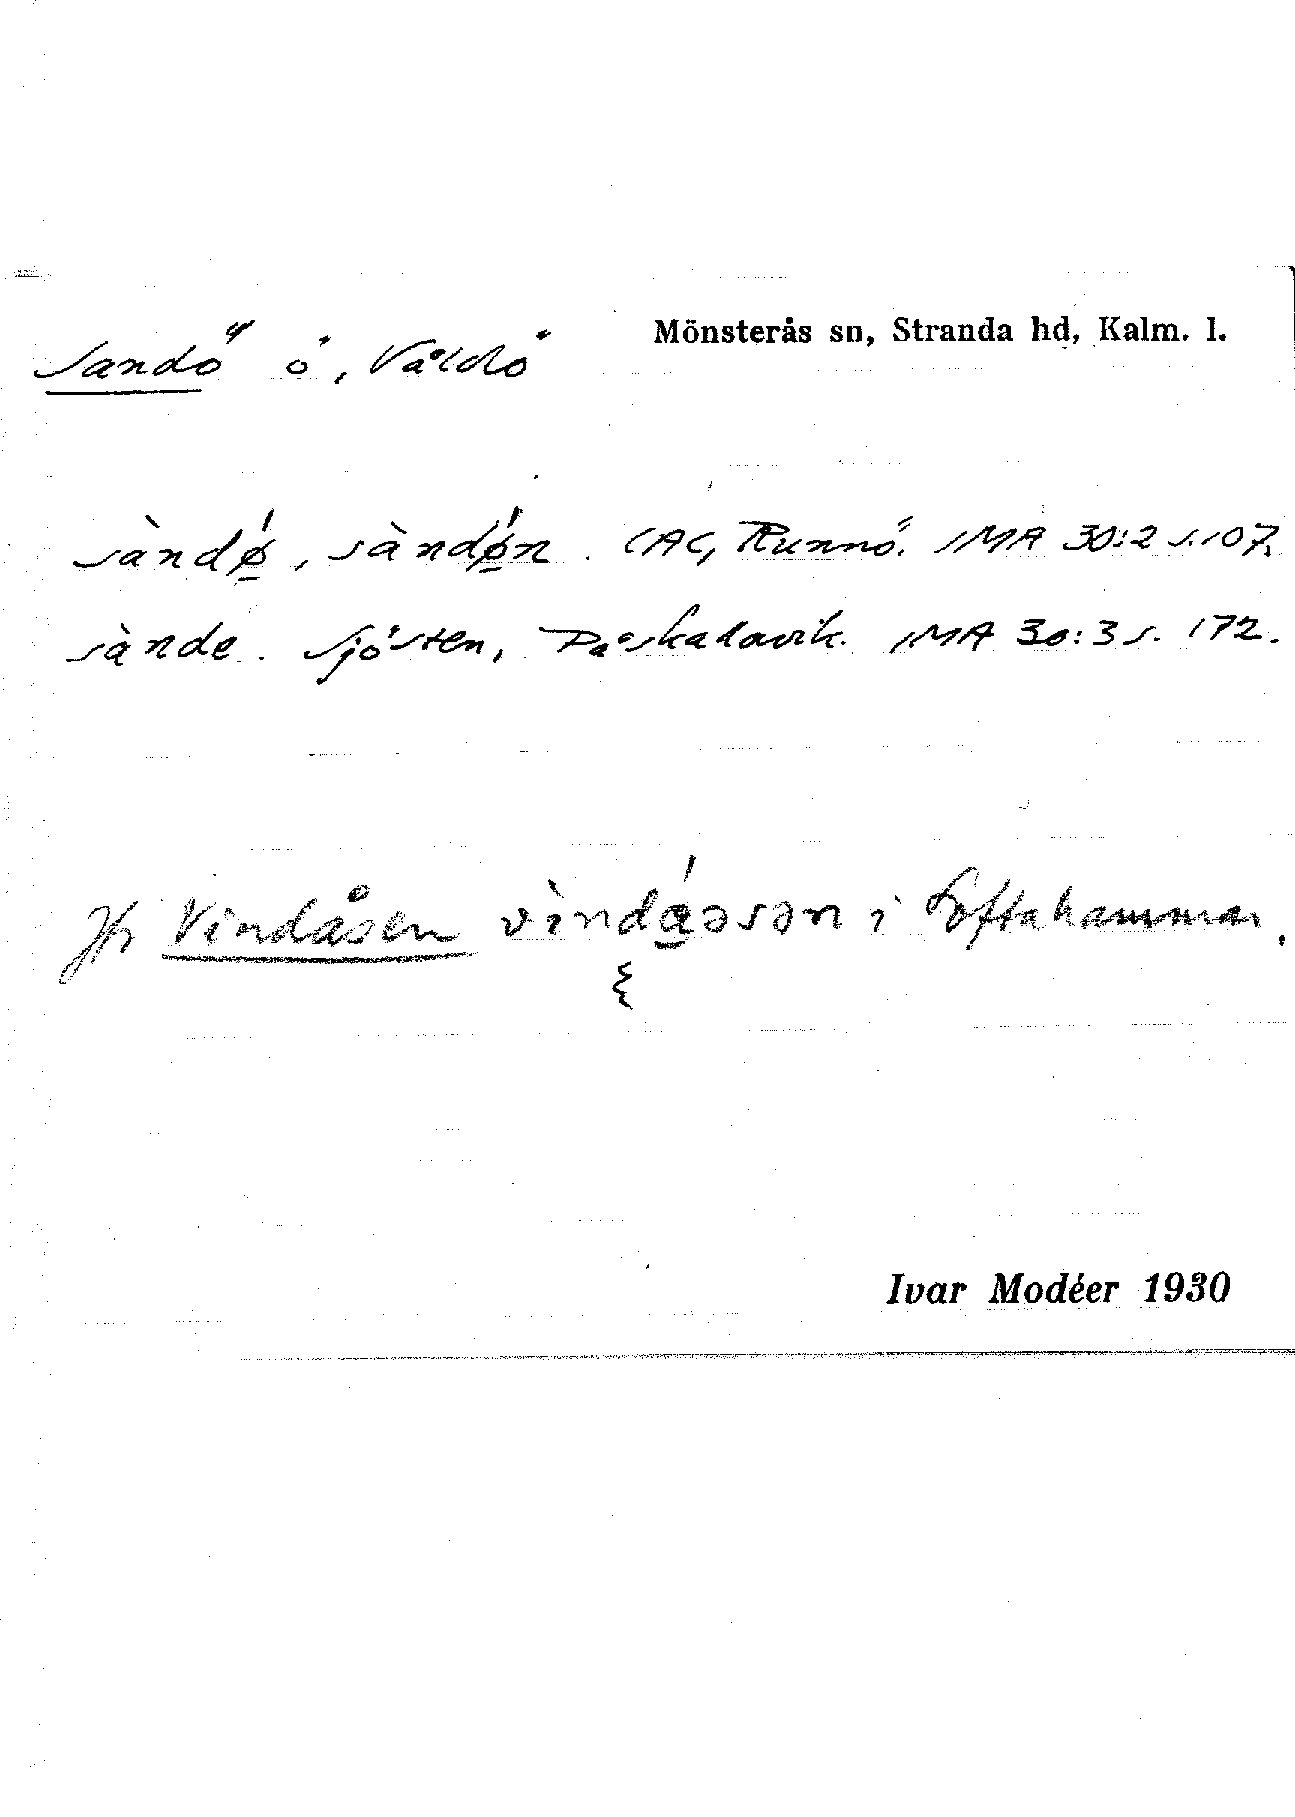 Sandö ö, Vållö Mönsterås sn, Stranda hd, Kalm. l.
sàndǿ, sàndǿn. CAG, Runnö. IMA 30:2 s. 107.
sànde. Sjösten, Påskalavik. IMA 30:3 s. 172.
Jfr Vindåsen vìndáəsən i Loftahammar.
Ivar Modéer 1930